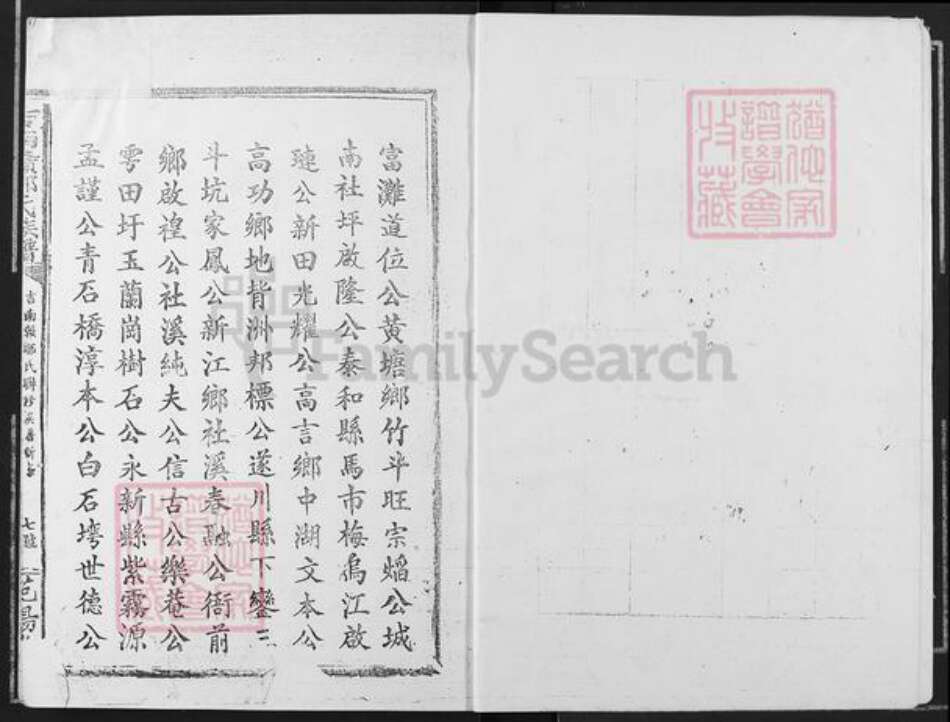 富灘道位公黄塘鄉竹斗旺宗熖公城
南社坪啟隆公泰和縣馬市梅烏江啟
璉公新田光耀公高言鄉中湖文本公
高功鄉地背洲邦標公遂川縣下鑾三
斗坑家鳳公新江鄉社溪春融公衙前
鄉啟禋公社溪純夫公信古公樂菴公
雩田圩玉蘭崗樹石公永新縣紫霧源
孟謹公青石橋淳本公白石塆世德公
七
FamilySearch
譜學會
收藏